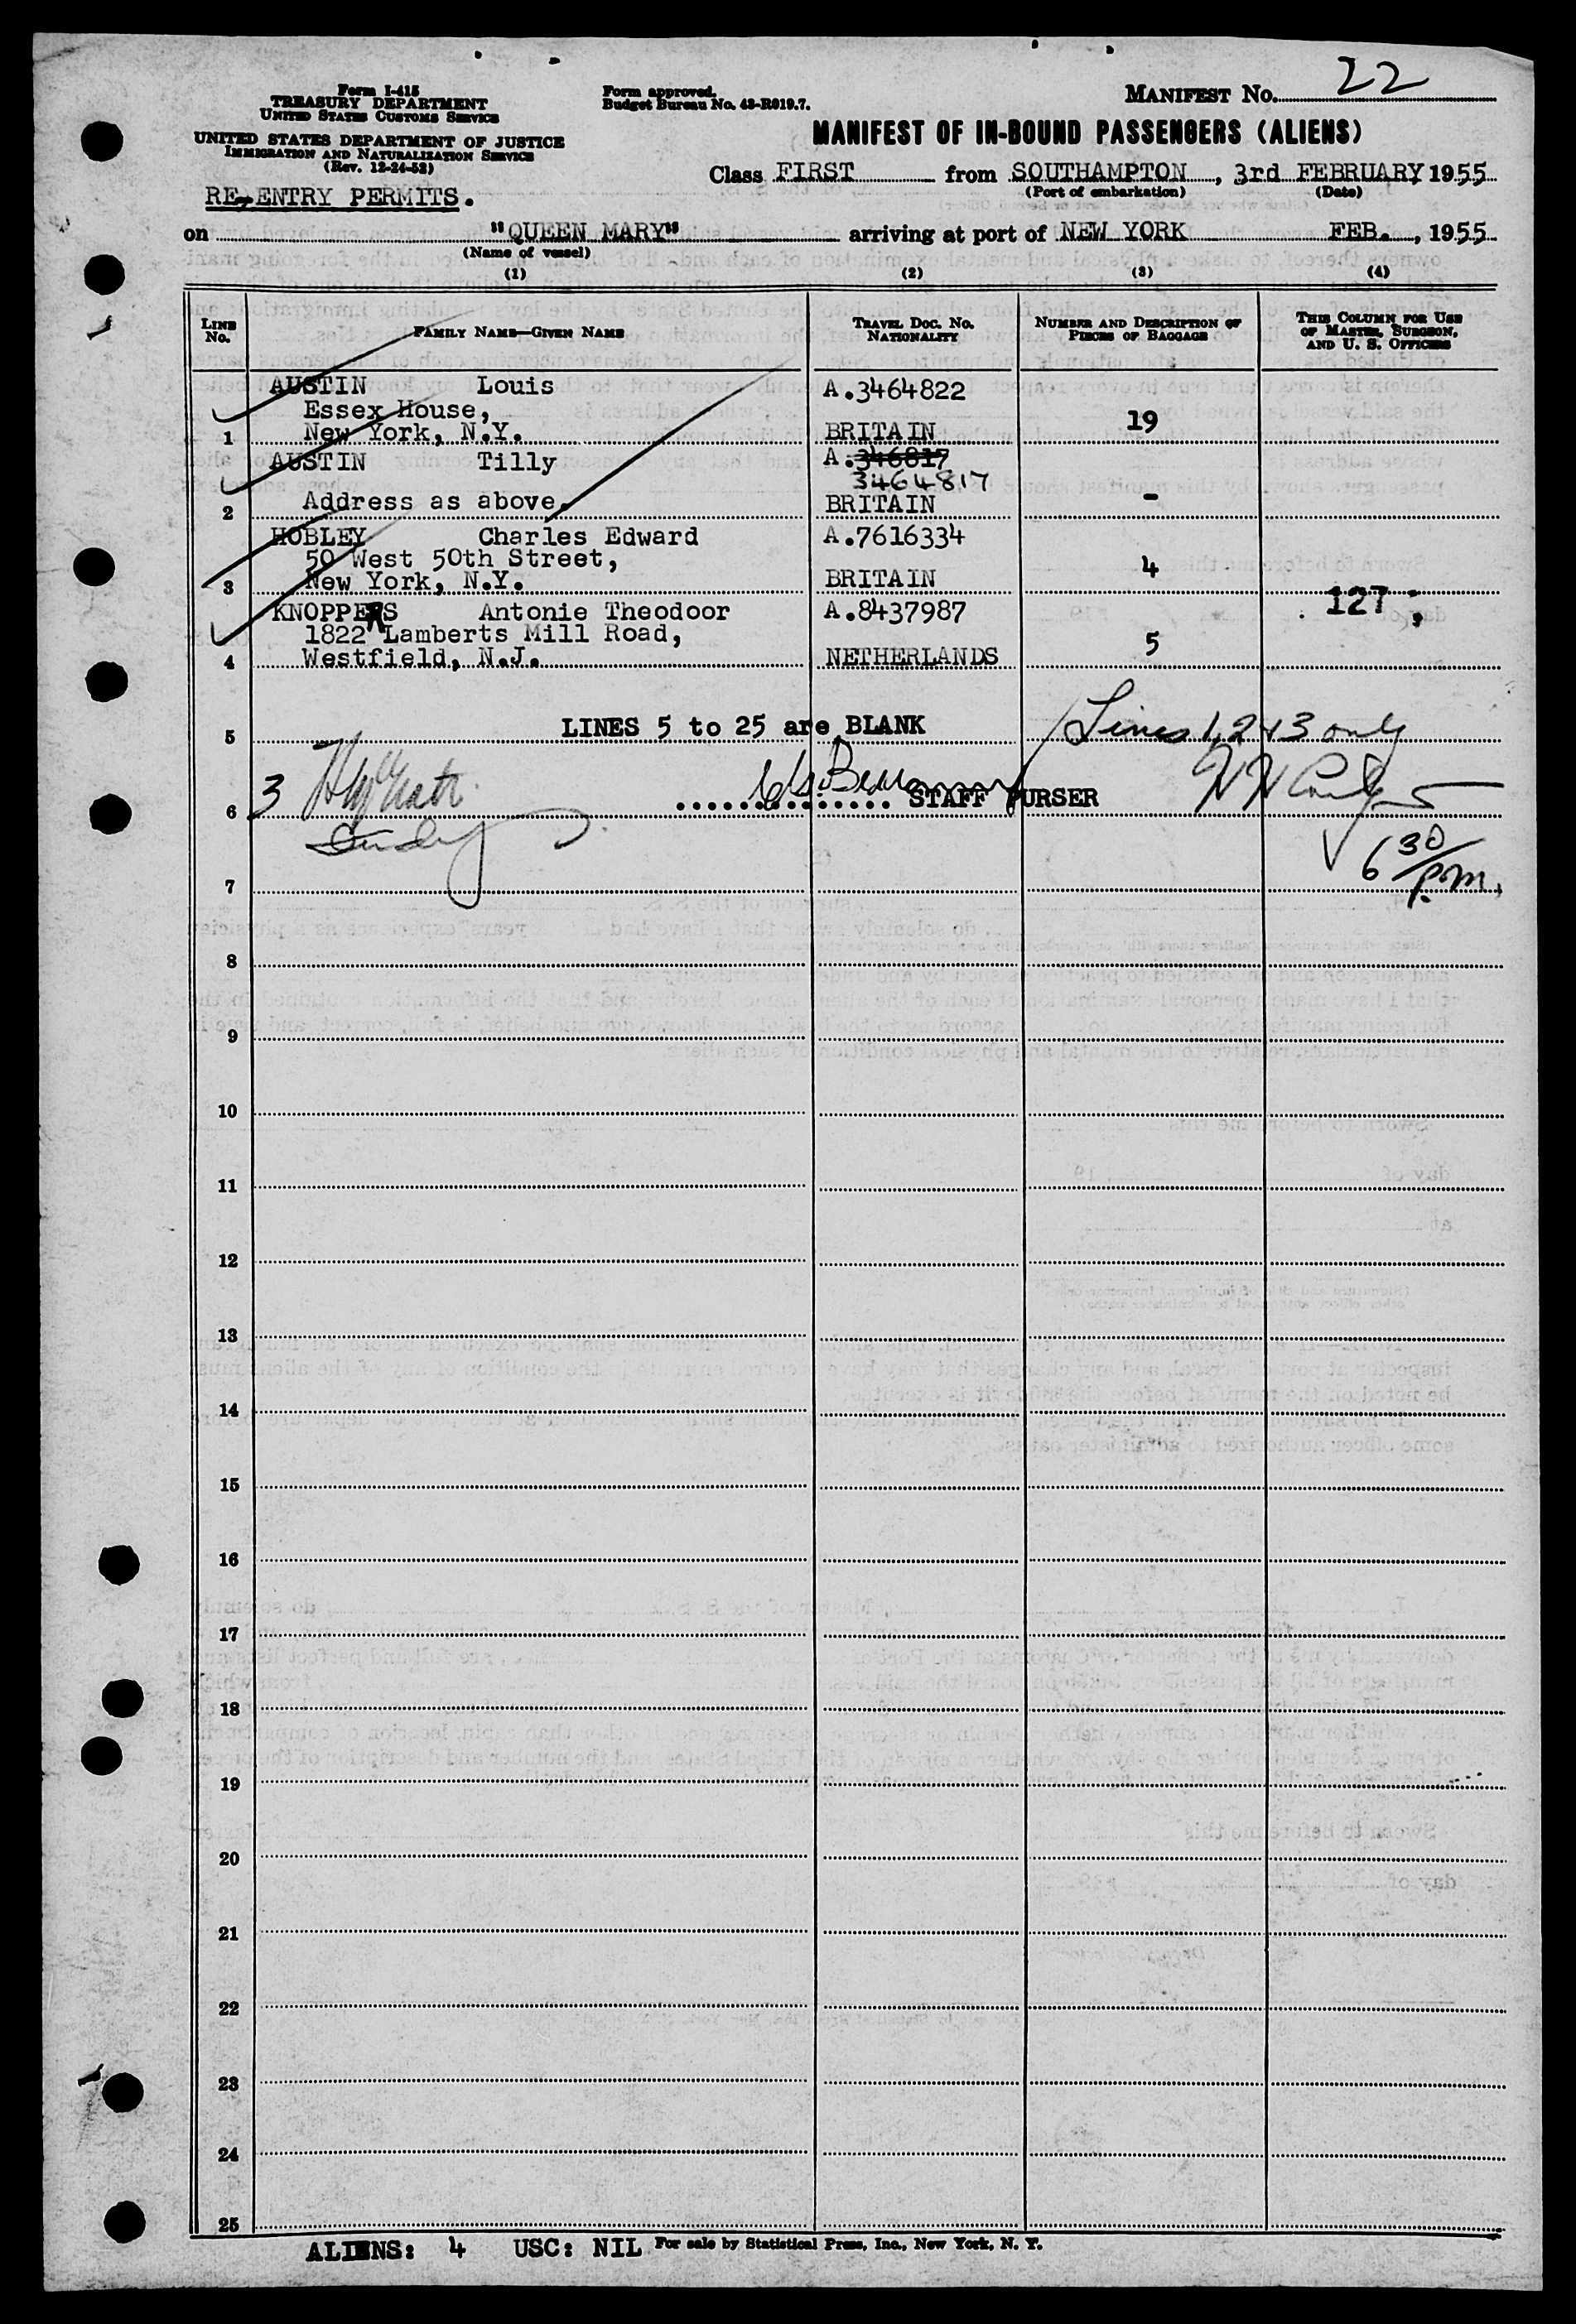 Form I-415
TREASURY DEPARTMENT
UNITED STATES CUSTOMS SERVICE
UNITED STATES DEPARTMENT OF JUSTICE
IMMIGRATION AND NATURALIZATION SERVICE
(Rev. 12-24-52)
Form approved.
Budget Bureau No. 43-R019.7.
MANIFEST NO. 22
MANIFEST OF IN-BOUND PASSENGERS (ALIENS)
Class FIRST from SOUTHAMPTON, 3rd FEBRUARY 1955
(Port of embarkation) (Date)
RE-ENTRY PERMITS.
on "QUEEN MARY" arriving at port of NEW YORK FEB., 1955
(Name of vessel)
(1) (2) (3) (4)
LINE NO. FAMILY NAME—GIVEN NAME TRAVEL DOC. NO. NATIONALITY NUMBER AND DESCRIPTION OF PIECES OF BAGGAGE THIS COLUMN FOR USE OF MASTER, SURGEON, AND U. S. OFFICERS
AUSTIN Louis A.3464822
Essex House, 19
1 New York, N.Y. BRITAIN
AUSTIN Tilly A.346817
3464817
2 Address as above. BRITAIN -
HOBLEY Charles Edward A.7616334
50 West 50th Street, 4
3 New York, N.Y. BRITAIN
KNOPPERS Antonie Theodoor A.8437987 127;
1822 Lamberts Mill Road, 5
4 Westfield, N.J. NETHERLANDS
5 LINES 5 to 25 are BLANK Lines 1, 2 & 3 only
3
6 STAFF PURSER
6 30/p.m.
7
8
9
10
11
12
13
14
15
16
17
18
19
20
21
22
23
24
25
ALIENS: 4 USC: NIL For sale by Statistical Press, Inc., New York, N. Y.